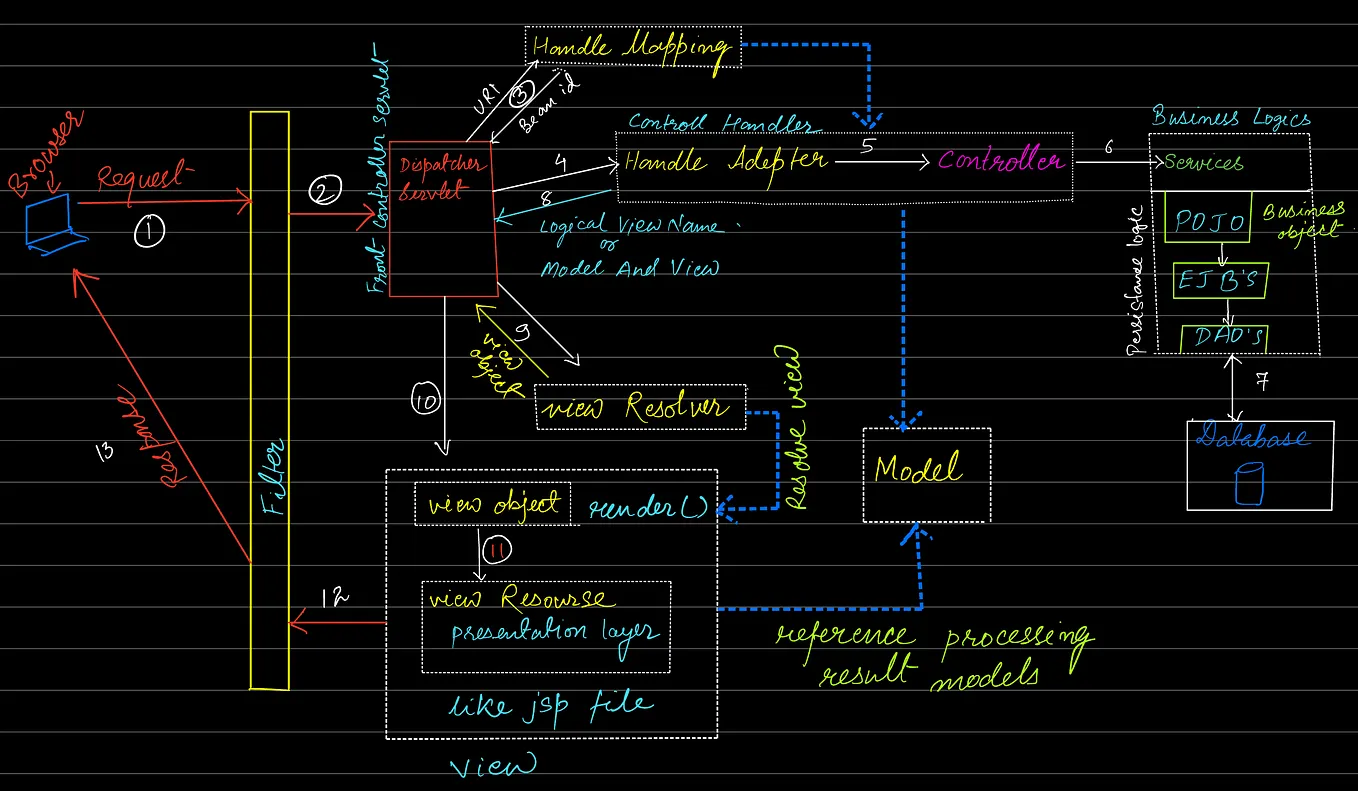 Handle Mapping
URI
3
Bean id
Front Controller Servlet
Controll Handler
Business Logics
Browser
Request
1
2
Dispatcher
Servlet
4
Handle Adepter
5
Controller
6
Services
8
Logical View Name
or
Model And View
POJO
Business
object
Persistance logic
EJB'S
DAO's
7
Database
9
view
object
View Resolver
Resolve view
10
Model
13
Response
Filter
view object
render()
11
12
view Resourse
presentation layer
like jsp file
View
reference processing
result models